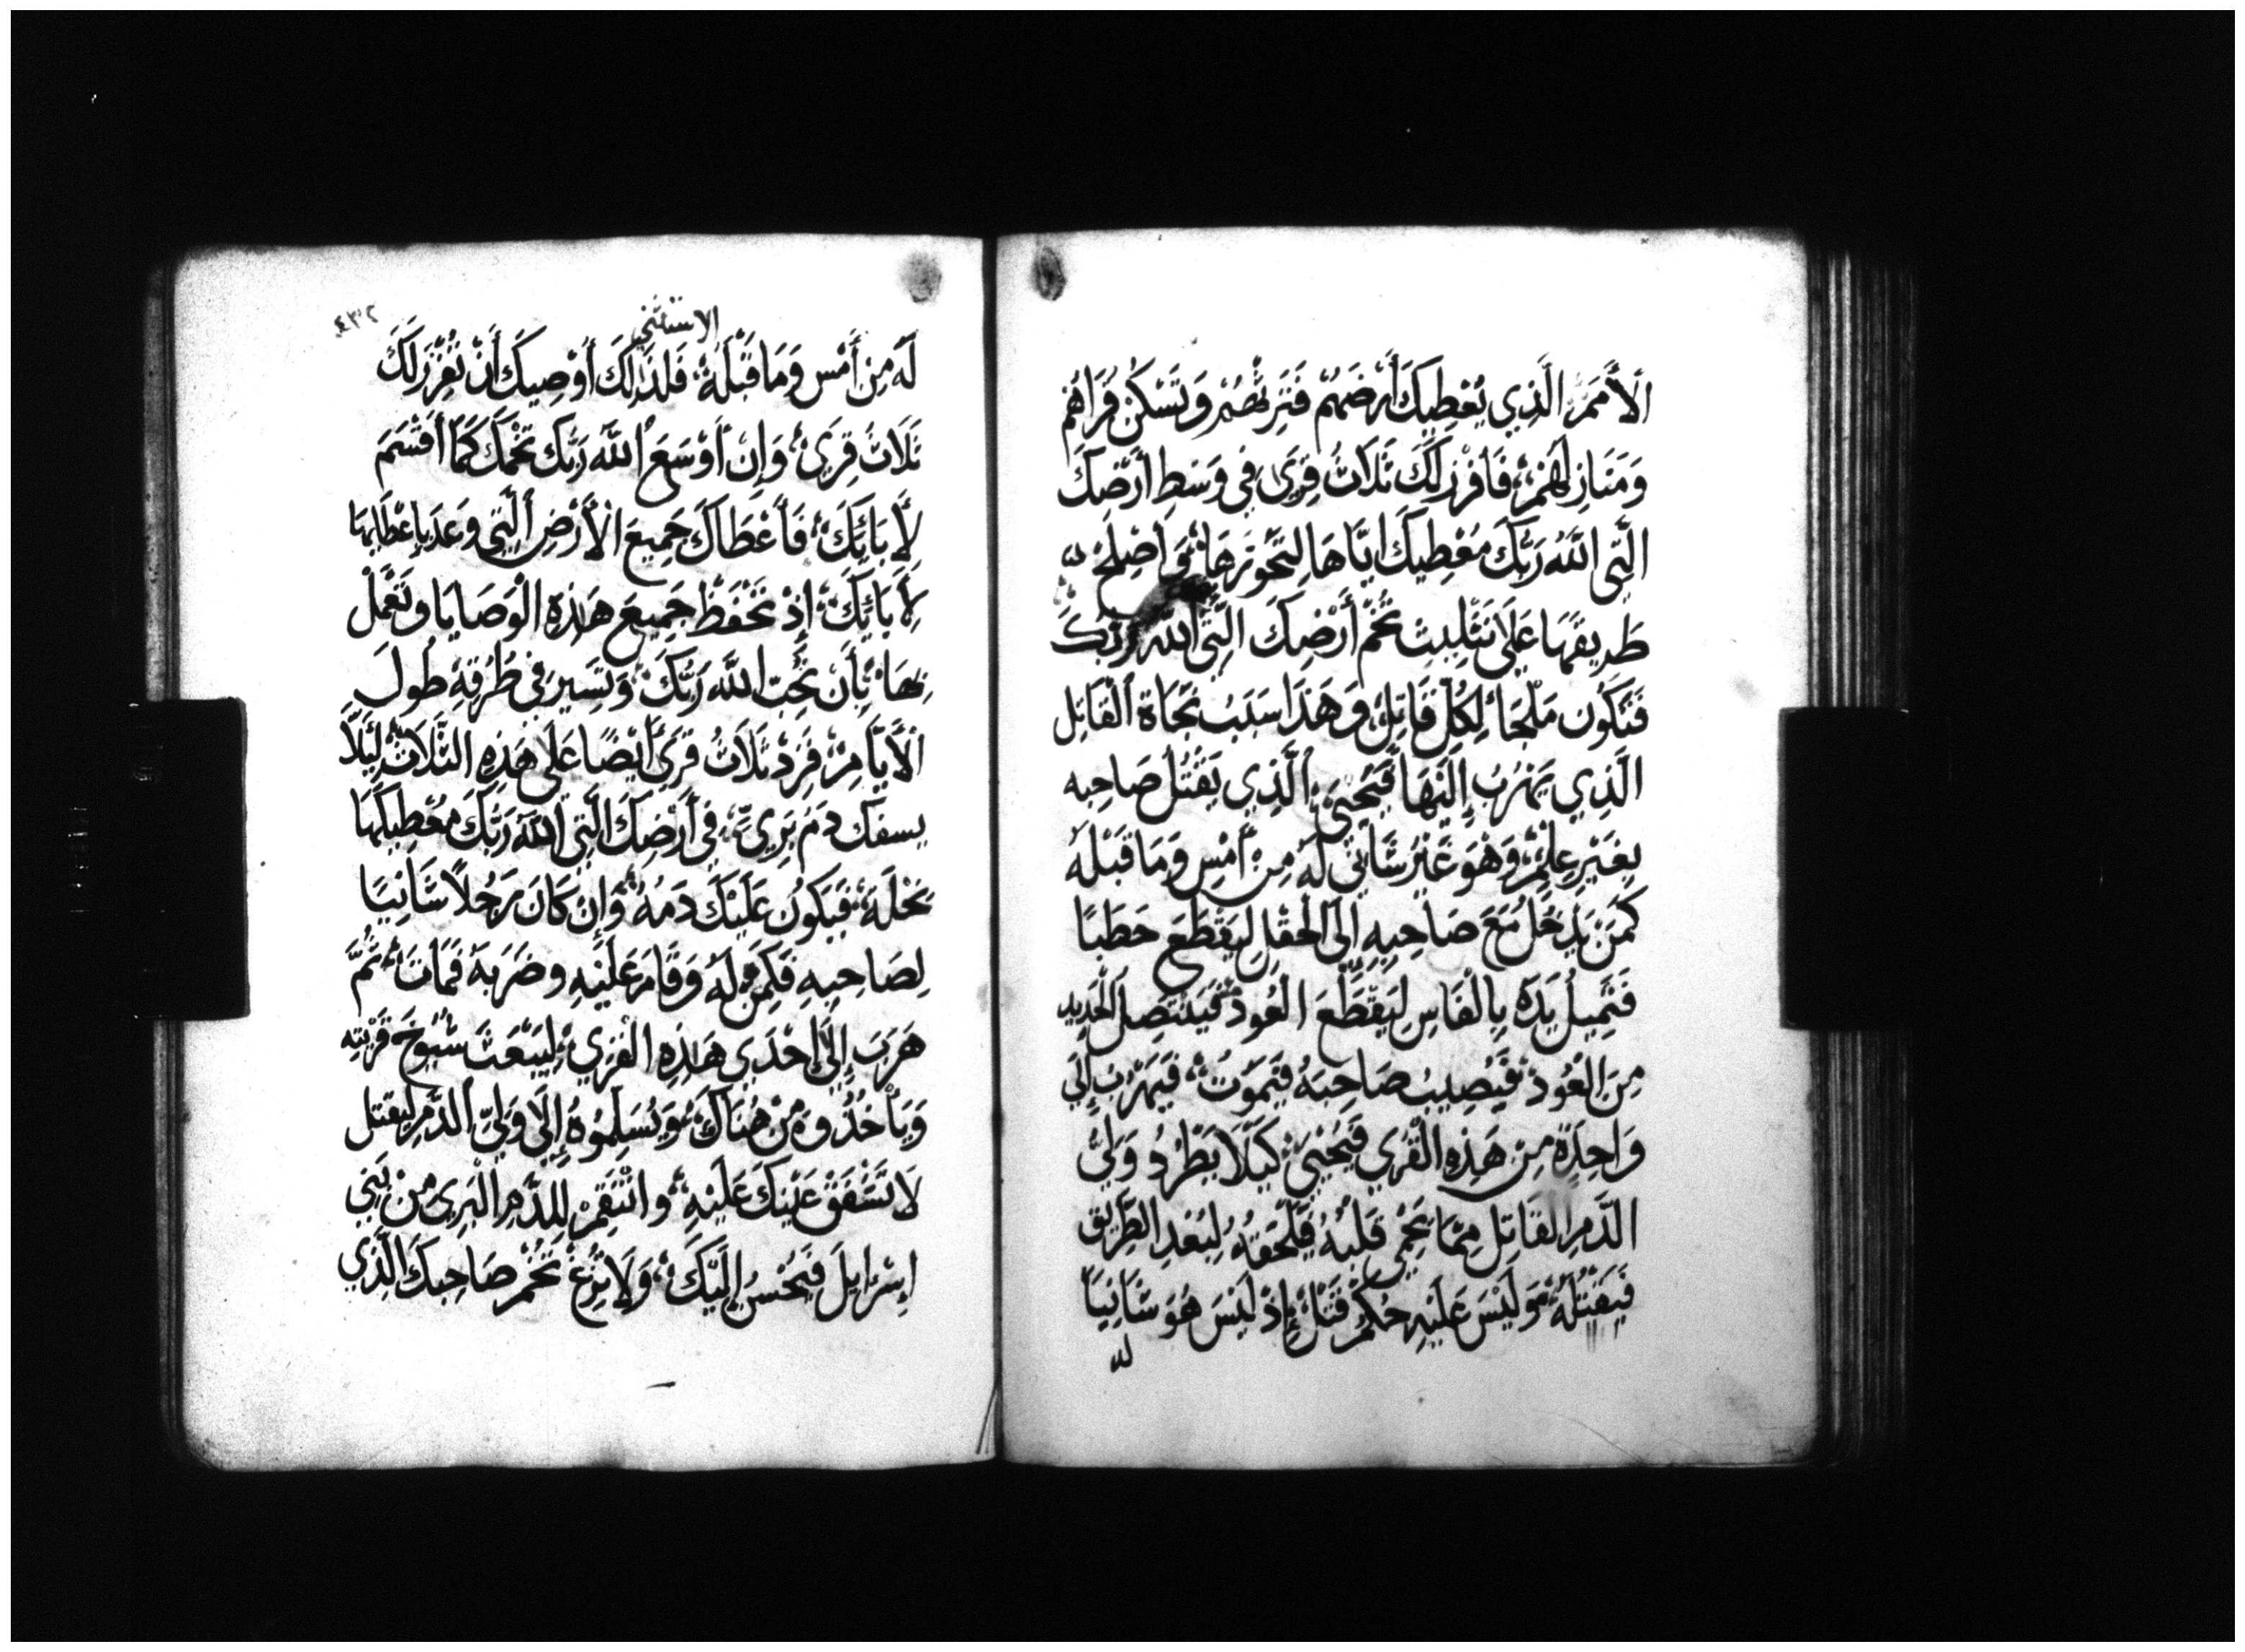 اَلأُمَمَ الَّذِي يُعْطِيكَ أَرْضَهُمْ فَتَرِثُهُمْ وَتَسْكُنْ قُرَاهُمْ
وَمَنَازِلَهُمْ، فَافْرِزْ لَكَ ثَلَاثُ قِرَى فِي وَسَطِ أَرْضِكَ
الَّتِي اللَّهُ رَبُّكَ مُعْطِيكَ ايَّاهَا لِتَحُوزَهَا، وَاصْلِحْ
طَرِيقَهَا عَلَى تَثْلِيثِ تُخْمِ أَرْضِكَ الَّتِي اللَّه رَبّكَ
فَتَكُون مَلْجَاءً لِكُلِّ قَاتِلٍ، وَهَذَا سَبَبُ نَجَاة اَلْقَاتِل
الَّذِي يَهْرُبُ إِلَيْهَا فَيَحْيَى، الَّذِي يَقْتُلُ صَاحِبه
بِغَيْرِ عِلْمٍ، وَهْوَ غَيْرُ شَانِيٍ لَهُ مِنْ أَمْسِ وَمَا قَبْلَهُ
كَمَنْ يَدْخُلُ مَعَ صَاحِبِهِ إِلَى الْحَقْلِ لِيَقْطَعَ حَطَبًا
فَتَمِيلُ يَدَهُ بِالْفَاسِ لِيَقْطَعَ الْعُودَ، فَيَنْتَصِلُ الْحَدِيد
مِنَ الْعُودِ، فَيُصِيبُ صَاحِبَهُ فَيَمُوتُ، فَيَهْرُبُ إِلَى
وَاحِدَةٍ مِنْ هَذِهِ الْقُرَي فَيَحْيَى، كَيْلَا يَطْرُدُ وَلِيُّ
الدَّمِ الْقَاتِل مِمَّا يَحْمِي قَلْبُهُ فَيَلْحَقهُ لِبُعْدِ الطَّرِيقِ
فَيَقْتُلهُ، وَلَيْسَ عَلَيْهِ حُكْمُ قَتْلٍ، إِذْ لَيْسَ هُوَ شَانِيًا
له
الاستثني
٤٣٢
لَهُ مِنْ أَمْسِ وَمَا قَبْلَهُ، فَلِذَلِكَ أُوْصِيكَ أَنْ تُفْرِزَ لَكَ
ثَلَاثُ قِرَى، وَإِنْ أَوْسَعَ اللَّه رَبّك تُخْمَكَ كَمَا أَقْسَمَ
لِأَبَائِكَ، فَأَعْطَاكَ جَمِيعَ الْأَرْضِ الَّتِي وَعَدَ بِإِعْطَايهَا
لِأَبَائِكَ، إِذْ تَحْفَظْ جَمِيعَ هَذِهِ الْوَصَايَا وَتَعْمَلْ
بِهَا، بِأَن تُحِبّ اللَّه رَبُّكَ، وَتَسِير فِي طُرُقِهِ طُولَ
الْأَيَّامِ، فَزِدْ ثَلَاثُ قِرَى أَيْضًا عَلَى هَذِهِ الثَّلَاثِ، لِيَلَّا
يسفك دَمَ بَرِيٍّ، فِي أَرْضِكَ الَّتِي اللَّه رَبّكَ مُعْطِيكَهَا
نِحْلَةً، فَيَكُونُ عَلَيْكَ دَمهُ، وَإِنْ كَانَ رَجُلاً شَانِيًا
لِصَاحِبِهِ فَكَمِنَ لَهُ وَقَامَ عَلَيْهِ وضَرَبَهُ فَمَاتَ، ثُمَّ
هَرَبَ إِلَى إِحْدَي هَذِهِ الْقُرَي، لِيَبْعَثَ شُيُوخَ قَرْيَتِه
وَيَأْخُذُوهُ مِنْ هُنَاكَ، وَيُسَلِمُوهُ إِلَى وَلِيِّ الدَّمِ لِيقتل
لَا تَشْفَقْ عَيْنكَ عَلَيْهِ، وانْتَقِمْ لِلدَّمِ الْبَرِي مِنْ بَنِي
إِسْرَايِلَ فَيَحْسُنُ إِلَيْكَ، وَلَا تُزِغْ تُخْمَ صَاحِبِكَ الَّذِي